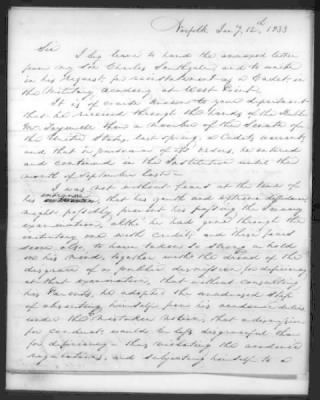 Norfolk Jany 12th 1833
Sir
I beg leave to hand the annexed letter
from my Son Charles and to unite
in his request, for reinstatement as a Cadet in
the Military Academy at West Point.
It is of course known to your department
that he received through the hands of the
Mr. Tazewell then a member of the Senate of
the United States, last spring, a Cadets warrant,
and that in pursuance of orders, he entered
and continued in the Institution until the
month of September last.
I was not without fears at the time of
his that his youth and
might possibly, prevent his passing the January
examination, altho' he had gone through the
one with credit; and these fears
seem also, to have taken so strong a hold
on his mind, together with the dread of the
disgrace of a public dismission for deficiency
at that examination, that without consulting
his Parents, he adopted the step
of absenting himself from his academic duties
under the mistaken notion, that a dismission
for conduct, would be less disgraceful than
for deficiency - thus violating the academic
regulations, and subjecting himself to a